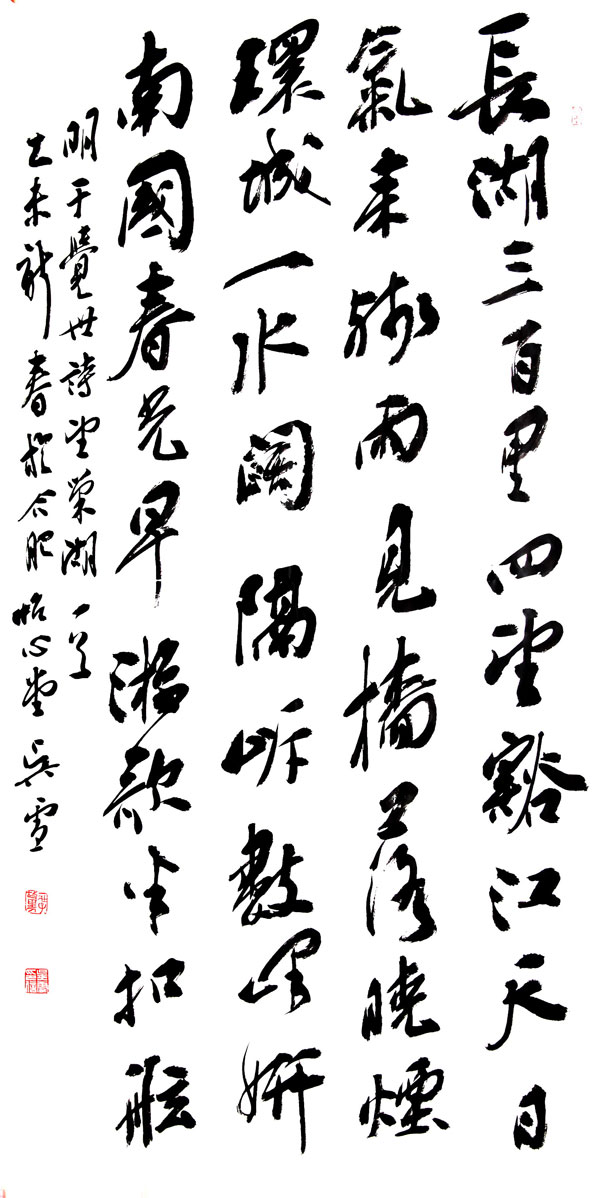 長湖三百里四望豁江天日
氣来殘雨見檣落曉煙
環城一水闊隔岸數峰妍
南國春光早漁歌半扣舷
明于覺世詩望巢湖一首
乙未新春於合肥怡心堂吳雪